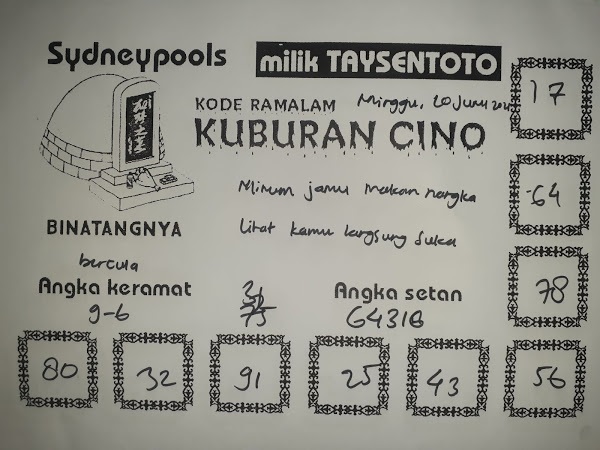 Sydneypools
milik TAYSENTOTO
KODE RAMALAM Minggu, 20 Juni
KUBURAN CINO
17
Minum jamu makan nangka
-64
BINATANGNYA
Lihat kamu langsung suka
bercula
Angka keramat
Angka setan
78
9-6
21
75
64318
80
32
91
25
43
56